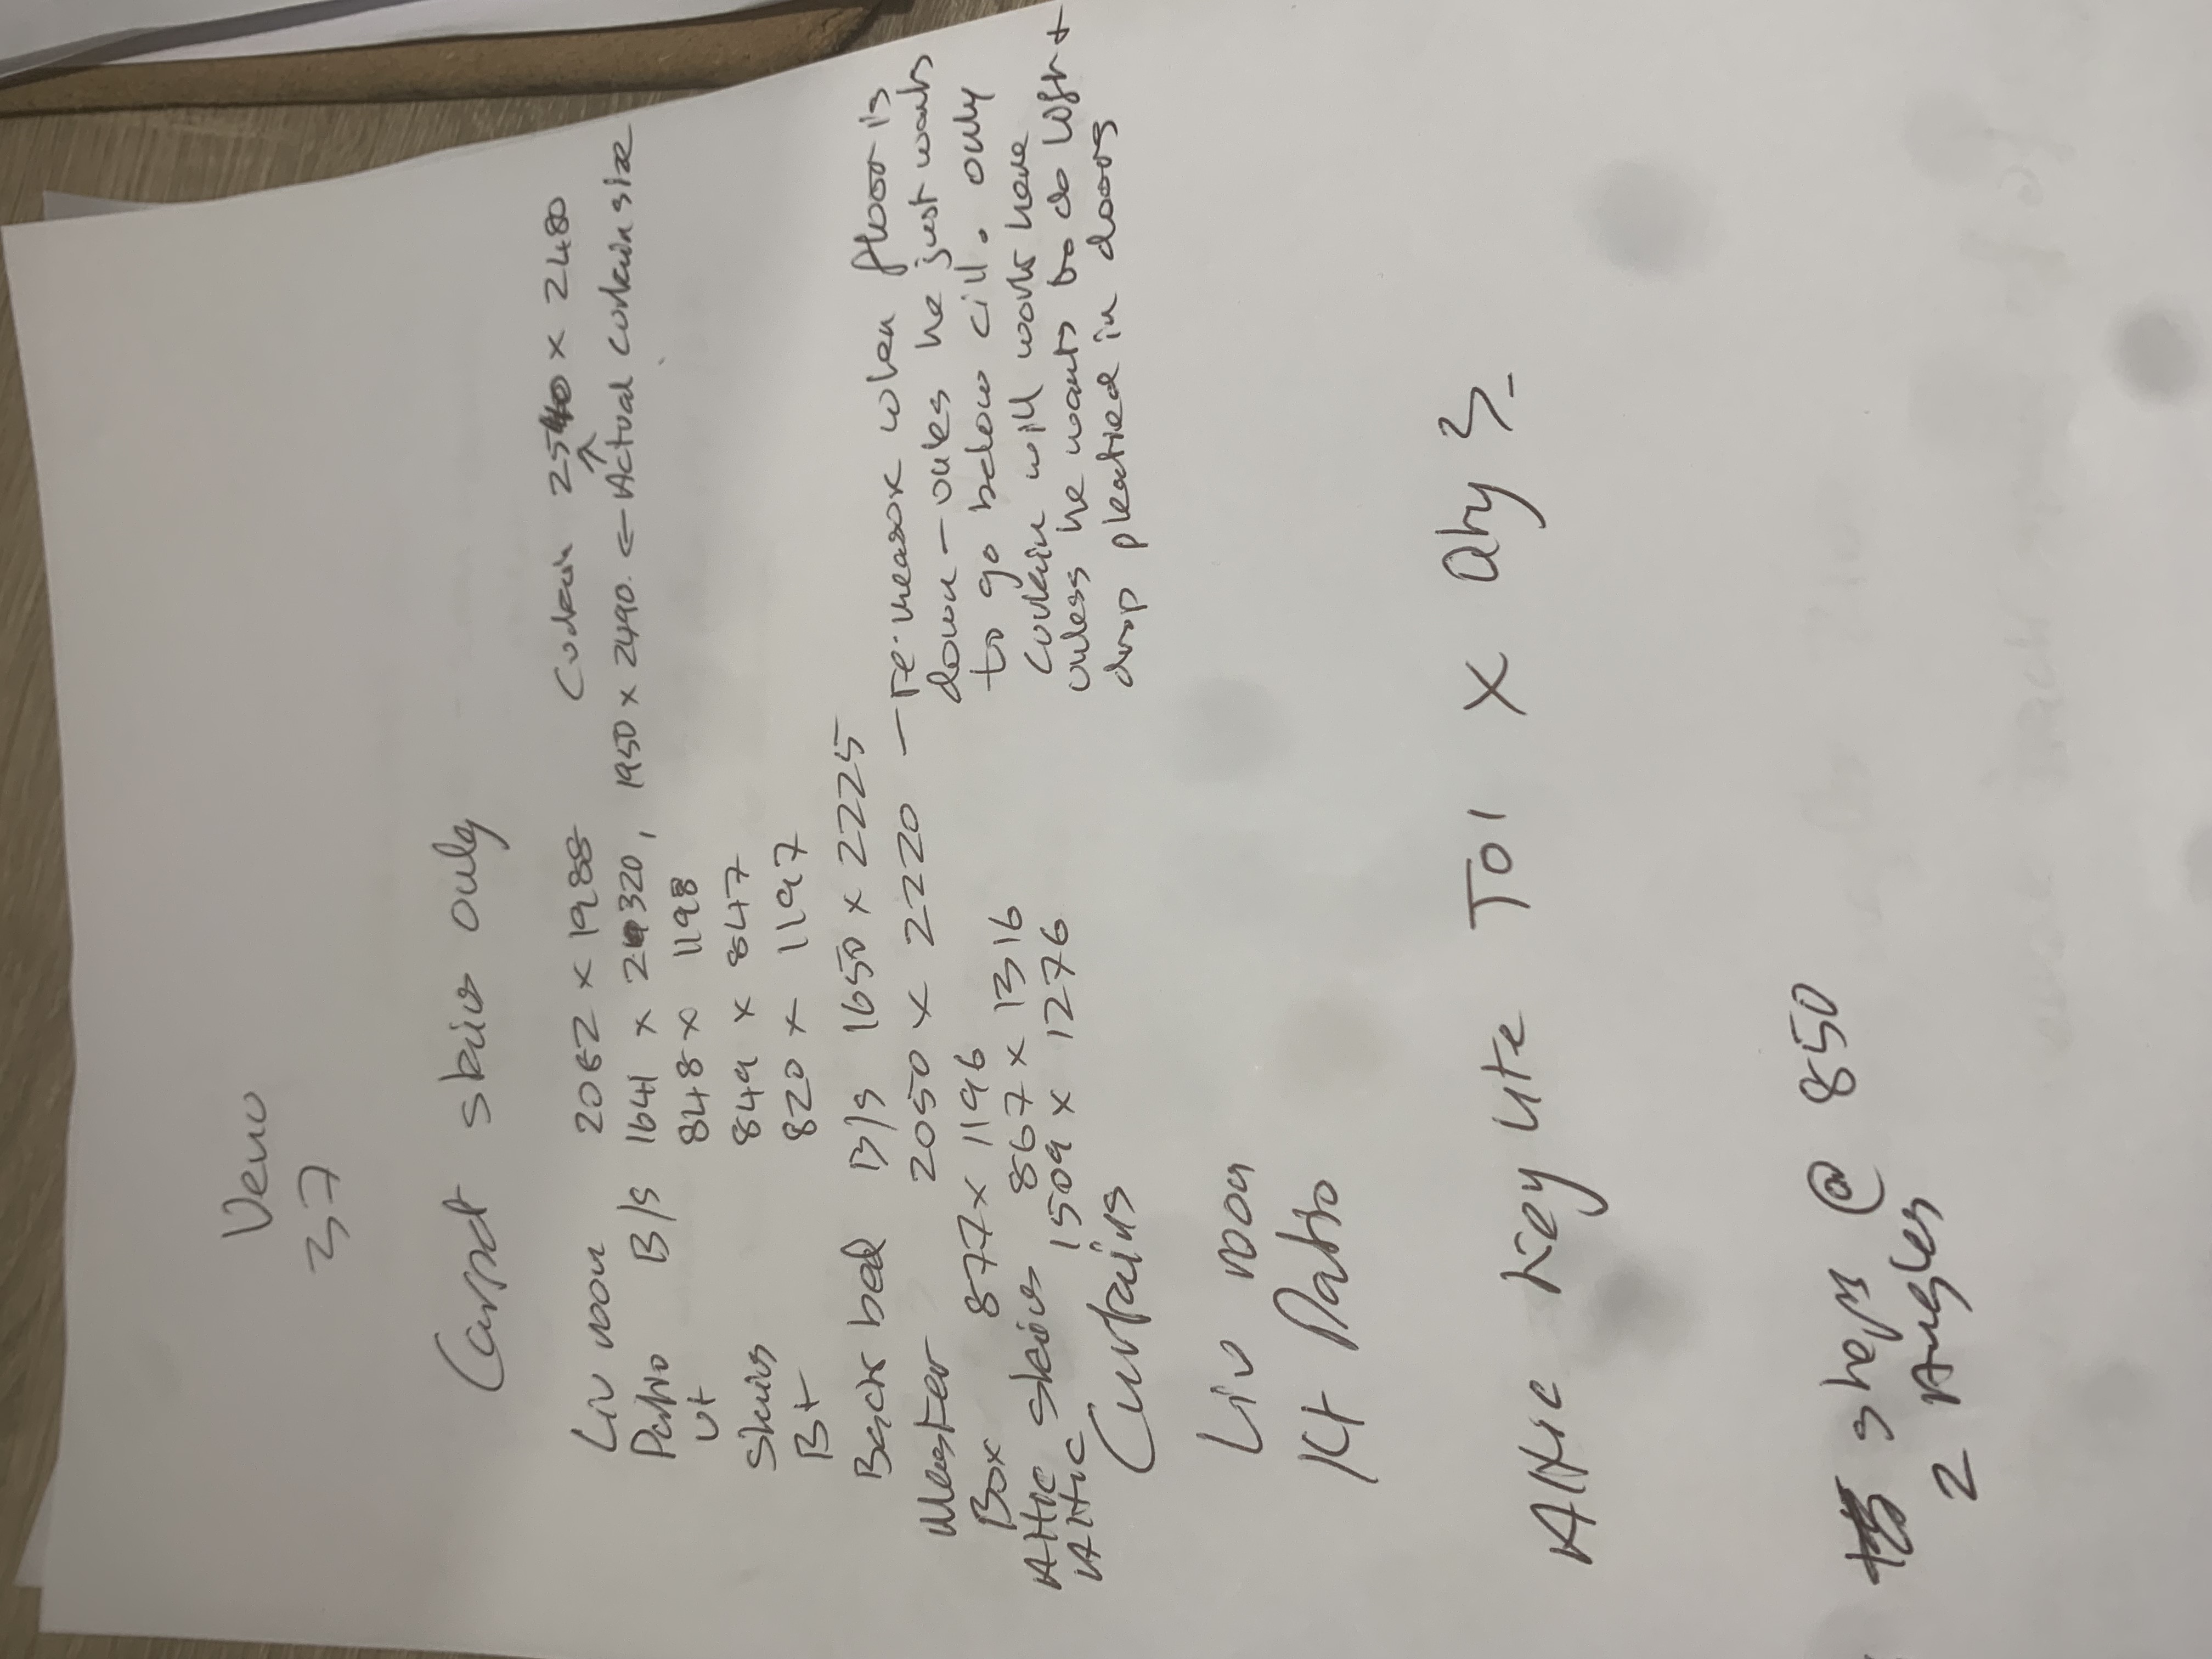 Venu
37
Carpet skivs only
Liv room 2062 x 1988 Curtain 2540 x 2480
Patio B/s 1641 x 2320, 1950 x 2490. ← Actual curtain size
Ut 848 x 1198
Skivs 849 x 847
Bt 820 x 1197
Back bed B/s 1650 x 2225
Master 2050 x 2220 - re-measox when floor is
down - unles he just wants
to go below cill. only
Box 877 x 1196
Curtain will work here
Attic Skivs 867 x 1316
unless he wants to do wsh +
Attic 1509 x 1276
drop pleatied in doors
Curtains
Liv room
Kt Patio
Attic Key Lite T01 x Qty 3
Steps @ 850
2 Angles